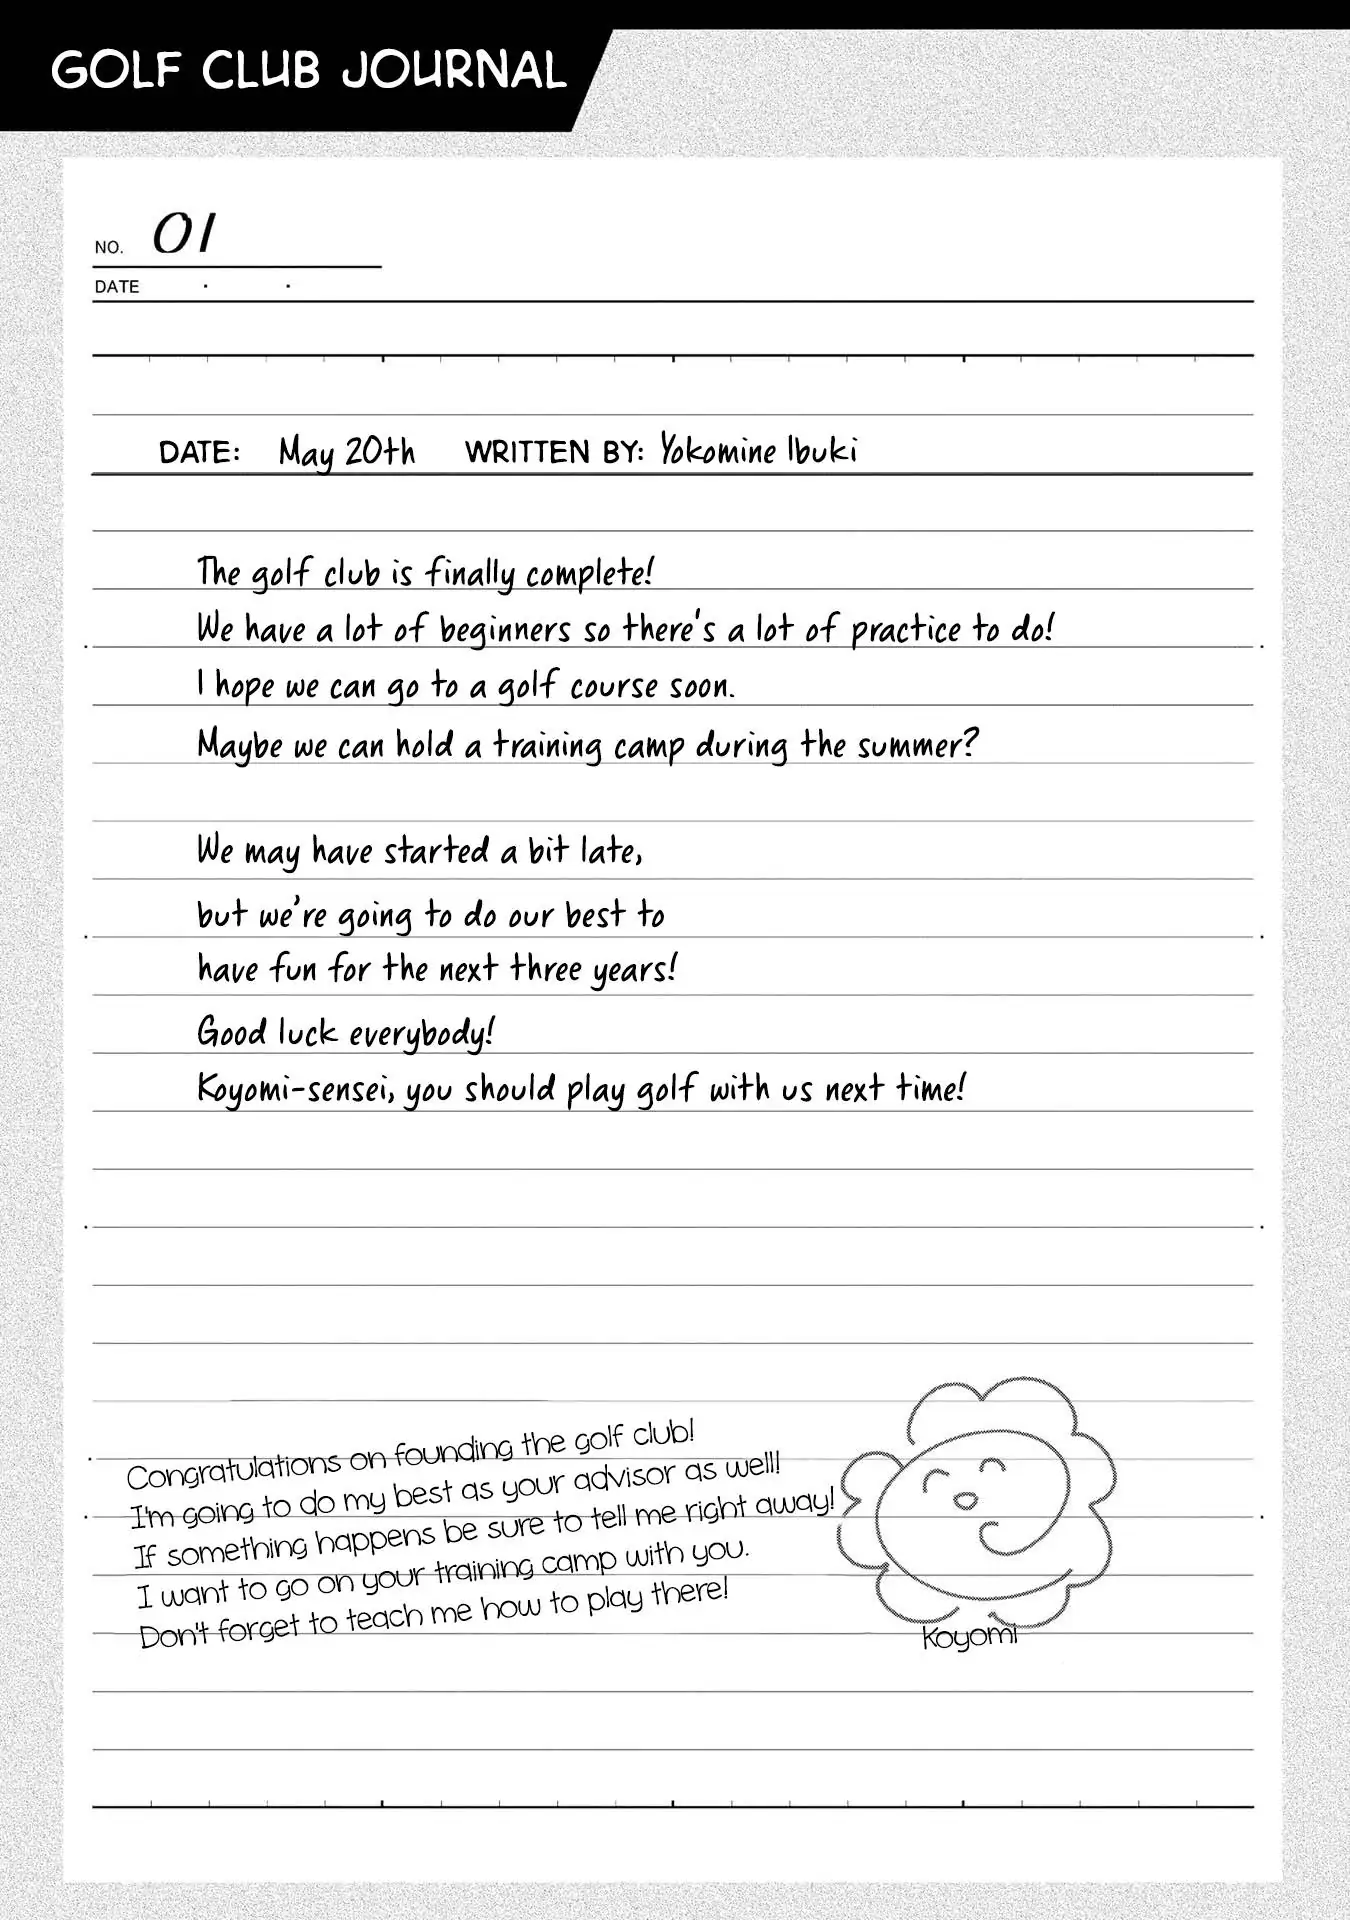 GOLF CLUB JOURNAL
NO. 01
DATE . .
DATE: May 20th WRITTEN BY: Yokomine Ibuki
The golf club is finally complete!
We have a lot of beginners so there's a lot of practice to do!
I hope we can go to a golf course soon.
Maybe we can hold a training camp during the summer?
We may have started a bit late,
but we're going to do our best to
have fun for the next three years!
Good luck everybody!
Koyomi-sensei, you should play golf with us next time!
Congratulations on founding the golf club!
I'm going to do my best as your advisor as well!
If something happens be sure to tell me right away!
I want to go on your training camp with you.
Don't forget to teach me how to play there!
Koyomi